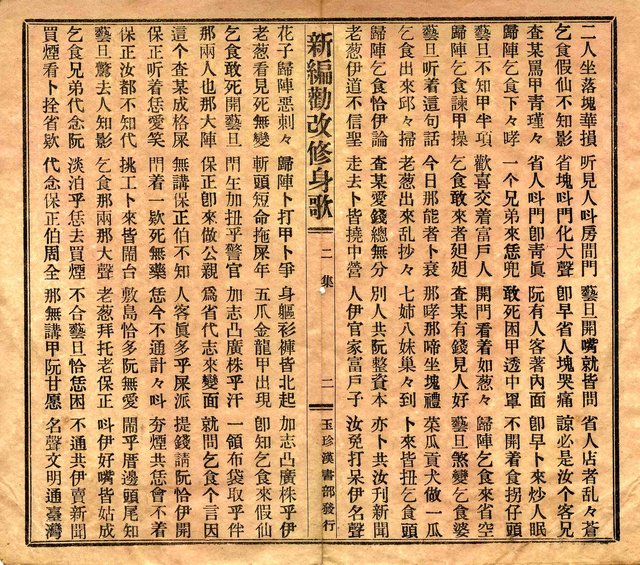 二人坐落塊華損 听見人呌房間門 藝旦開嘴就皆問 省人店者乱々蒼
乞食假仙不知影 省塊呌門化大聲 卽早省人塊哭痛 諒必是汝个客兄
查某罵甲青瑾々 省人呌門卽靑眞 阮有人客著內面 卽早卜來炒人眠
乞食下々哮 一个兄弟來恁兜 敢死困甲透中罩 不開着食拐仔頭
藝旦不知甲半項 歡喜交着富戶人 開門看着如葱々 歸陣乞食來省空
歸陣乞食諫甲操 乞食敢來者廻廻 查某有錢見人好 藝旦煞變乞食婆
藝旦听着這句話 今日那能者卜衰 那哮那啼坐塊禮 菜瓜貢犬做一瓜
乞食出來邱々掃 老葱出來乱抄々 七姉八妹集々到 卜來皆扭乞食頭
歸陣乞食恰伊論 查某愛錢總無分 別人共阮整資本 亦卜共汝刊新聞
老葱伊道不信聖 走去卜皆撓中營 人伊官家富戶子 汝免打呆伊名聲
新編勸改修身歌 二集 二 玉珍漢書部發行
花子歸陣惡刺々 歸陣卜打甲卜爭 身軀衫褲皆北起 加志凸廣株乎伊
老葱看見死無變 斬頭短命拖屎年 五爪金龍甲出現 卽知乞食來假仙
乞食敢死開藝旦 門午加扭乎警官 加志凸廣株乎汗 一領布袋取乎伴
那兩人也那大陣 保正卽來做公親 爲省代志來變面 就問乞食个言因
這个查某成格屎 無講保正伯不知 人客眞多乎屎派 提錢請阮恰伊開
保正听着恁愛笑 門着一欵死無藥 恁今不通計々呌 夯煙共恁會不着
保正汝都不知代 挑工卜來皆鬧台 敷島恰多阮無愛 鬧乎厝邊頭尾知
藝旦驚去人知影 乞食那兩那大聲 老葱拜托老保正 呌伊好嘴皆姑成
乞食兄弟代念阮 淡泊乎恁去買煙 不合藝旦恰恁困 不通共伊賣新聞
買煙看卜拴省欵 代念保正伯周全 那無講甲阮甘愿 名聲文明通臺灣